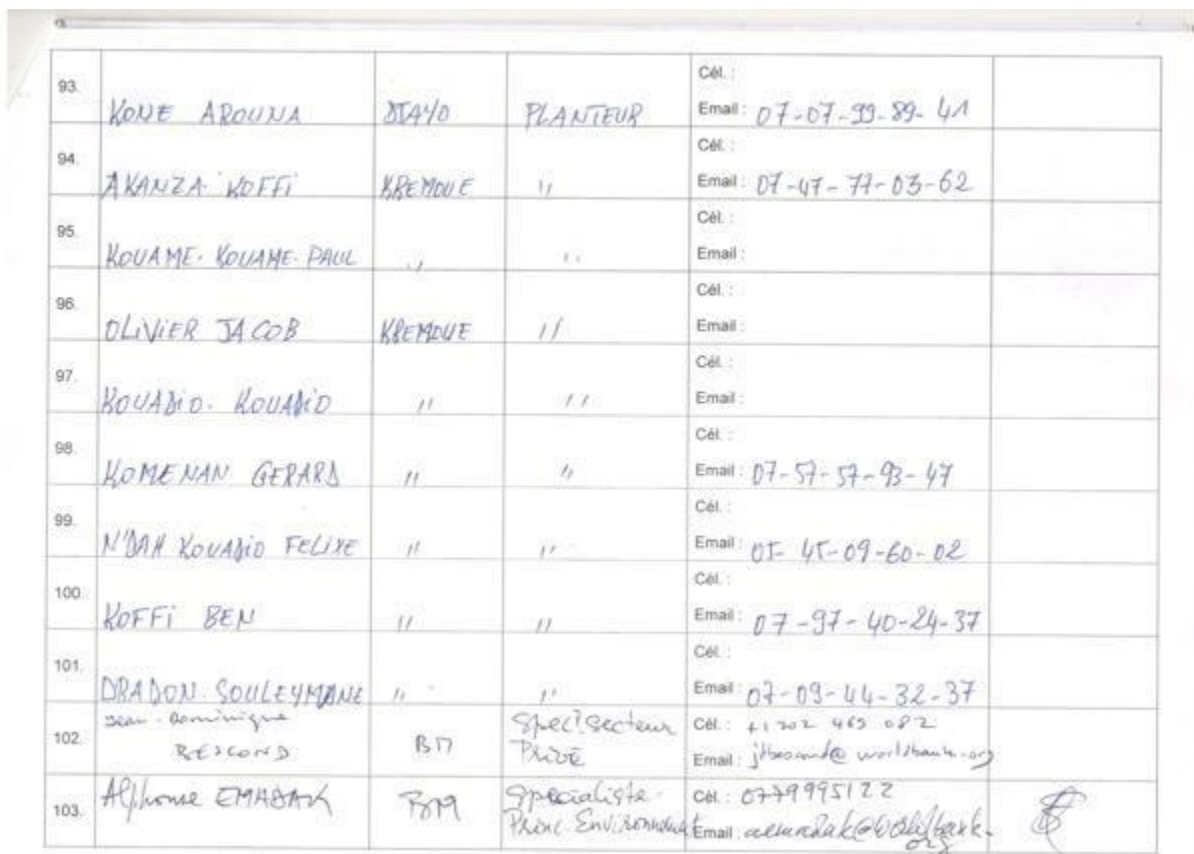 93.
KONE AROUNA DJAYO PLANTEUR Cél. :
Email : 07-07-99-89-41
94.
AKANZA KOFFI KREMOUE " Cél. :
Email : 07-47-77-03-62
95.
KOUAME. KOUAME. PAUL " " Cél. :
Email :
96.
OLIVIER JACOB KREMOUE " Cél. :
Email :
97.
KOUADIO. KOUADIO " " Cél. :
Email :
98.
KOMENAN GERARD " " Cél. :
Email : 07-57-57-93-47
99.
N'DAH KOUADIO FELIXE " " Cél. :
Email : 05-45-09-60-02
100.
KOFFI BEN " " Cél. :
Email : 07-97-40-24-37
101.
DRADON. SOULEYMANE " " Cél. :
Email : 07-09-44-32-37
102.
Jean-Dominique Spec. Secteur Cél. : +1 202
BESCOND BM Privé Email :
103.
Alphonse EMADAK BM Specialiste Cél. : 0779995122
Princ. Environnement Email : aemadak@worldbank.
org